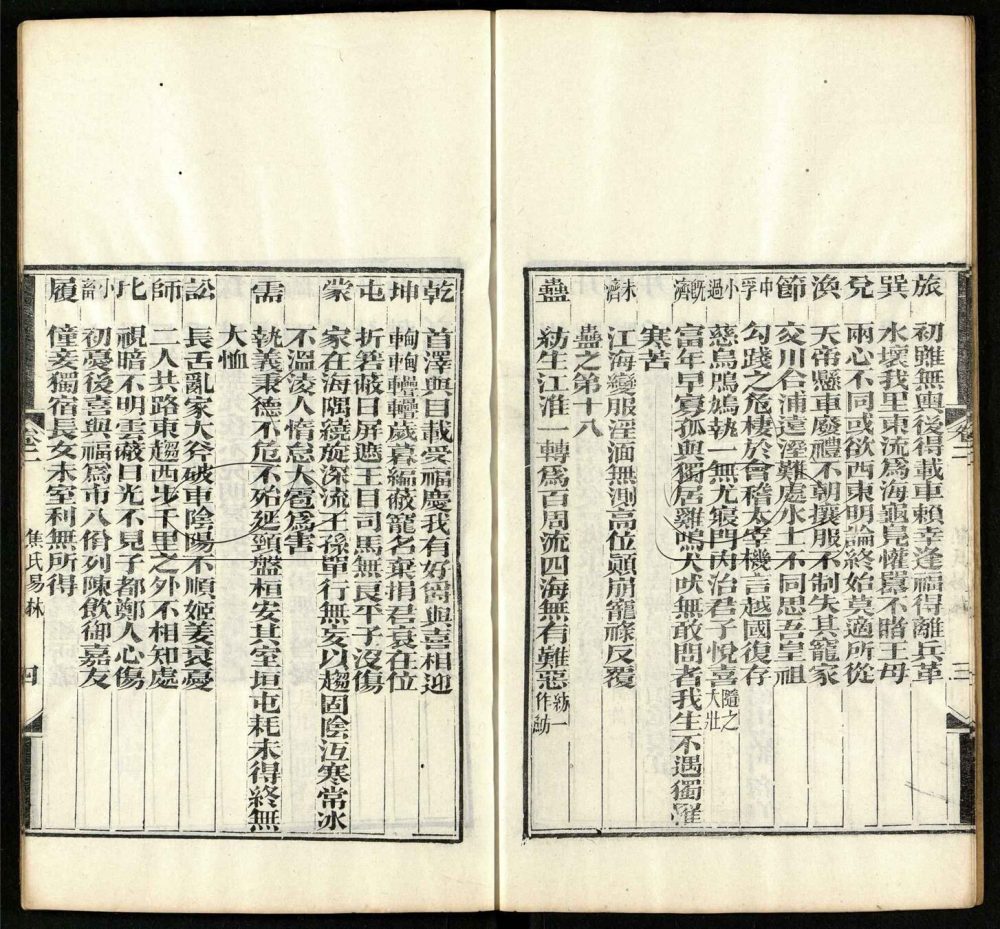 旅 初雖無輿後得載車賴幸逢福得離兵革
巽 水壞我里東流爲海龜鳧讙嚻不睹王母
兌 兩心不同或欲西東明論終始莫適所從
渙 天帝懸車廢禮不朝攘服不制失其寵家
節 交川合浦遠溼難處水土不同思吾皇祖
中孚 勾踐之危棲於會稽太宰機言越國復存
小過 慈烏鳲鳩執一無尤寢門內治君子悅喜 隨之大壯
旣濟 富年早寡孤與獨居雞鳴犬吠無敢問者我生不遇獨罹
寒苦
未濟 江海變服淫湎無測高位顛崩寵祿反覆
蠱之第十八
蠱 紡生江淮一轉爲百周流四海無有難惡 紡一作魴
卷二
三
乾 首澤與目載受福慶我有好爵與喜相迎
坤 輷輷轞轞歲暮編蔽寵名棄捐君衰在位
屯 折箬蔽日屏遮王目司馬無良平子沒傷
蒙 家在海隅繞旋深流王孫單行無妄以趨固陰沍寒常冰
不溫淩人惰怠大雹爲害
需 執義秉德不危不殆延頸盤桓安其室垣屯耗未得終無
大恤
訟 長舌亂家大斧破車陰陽不順姬姜衰憂
師 二人共路東趨西步千里之外不相知處
比 視暗不明雲蔽日光不見子都鄭人心傷
小畜 初憂後喜與福爲市八佾列陳飲御嘉友
履 僮妾獨宿長女未室利無所得
卷二
焦氏易林
四